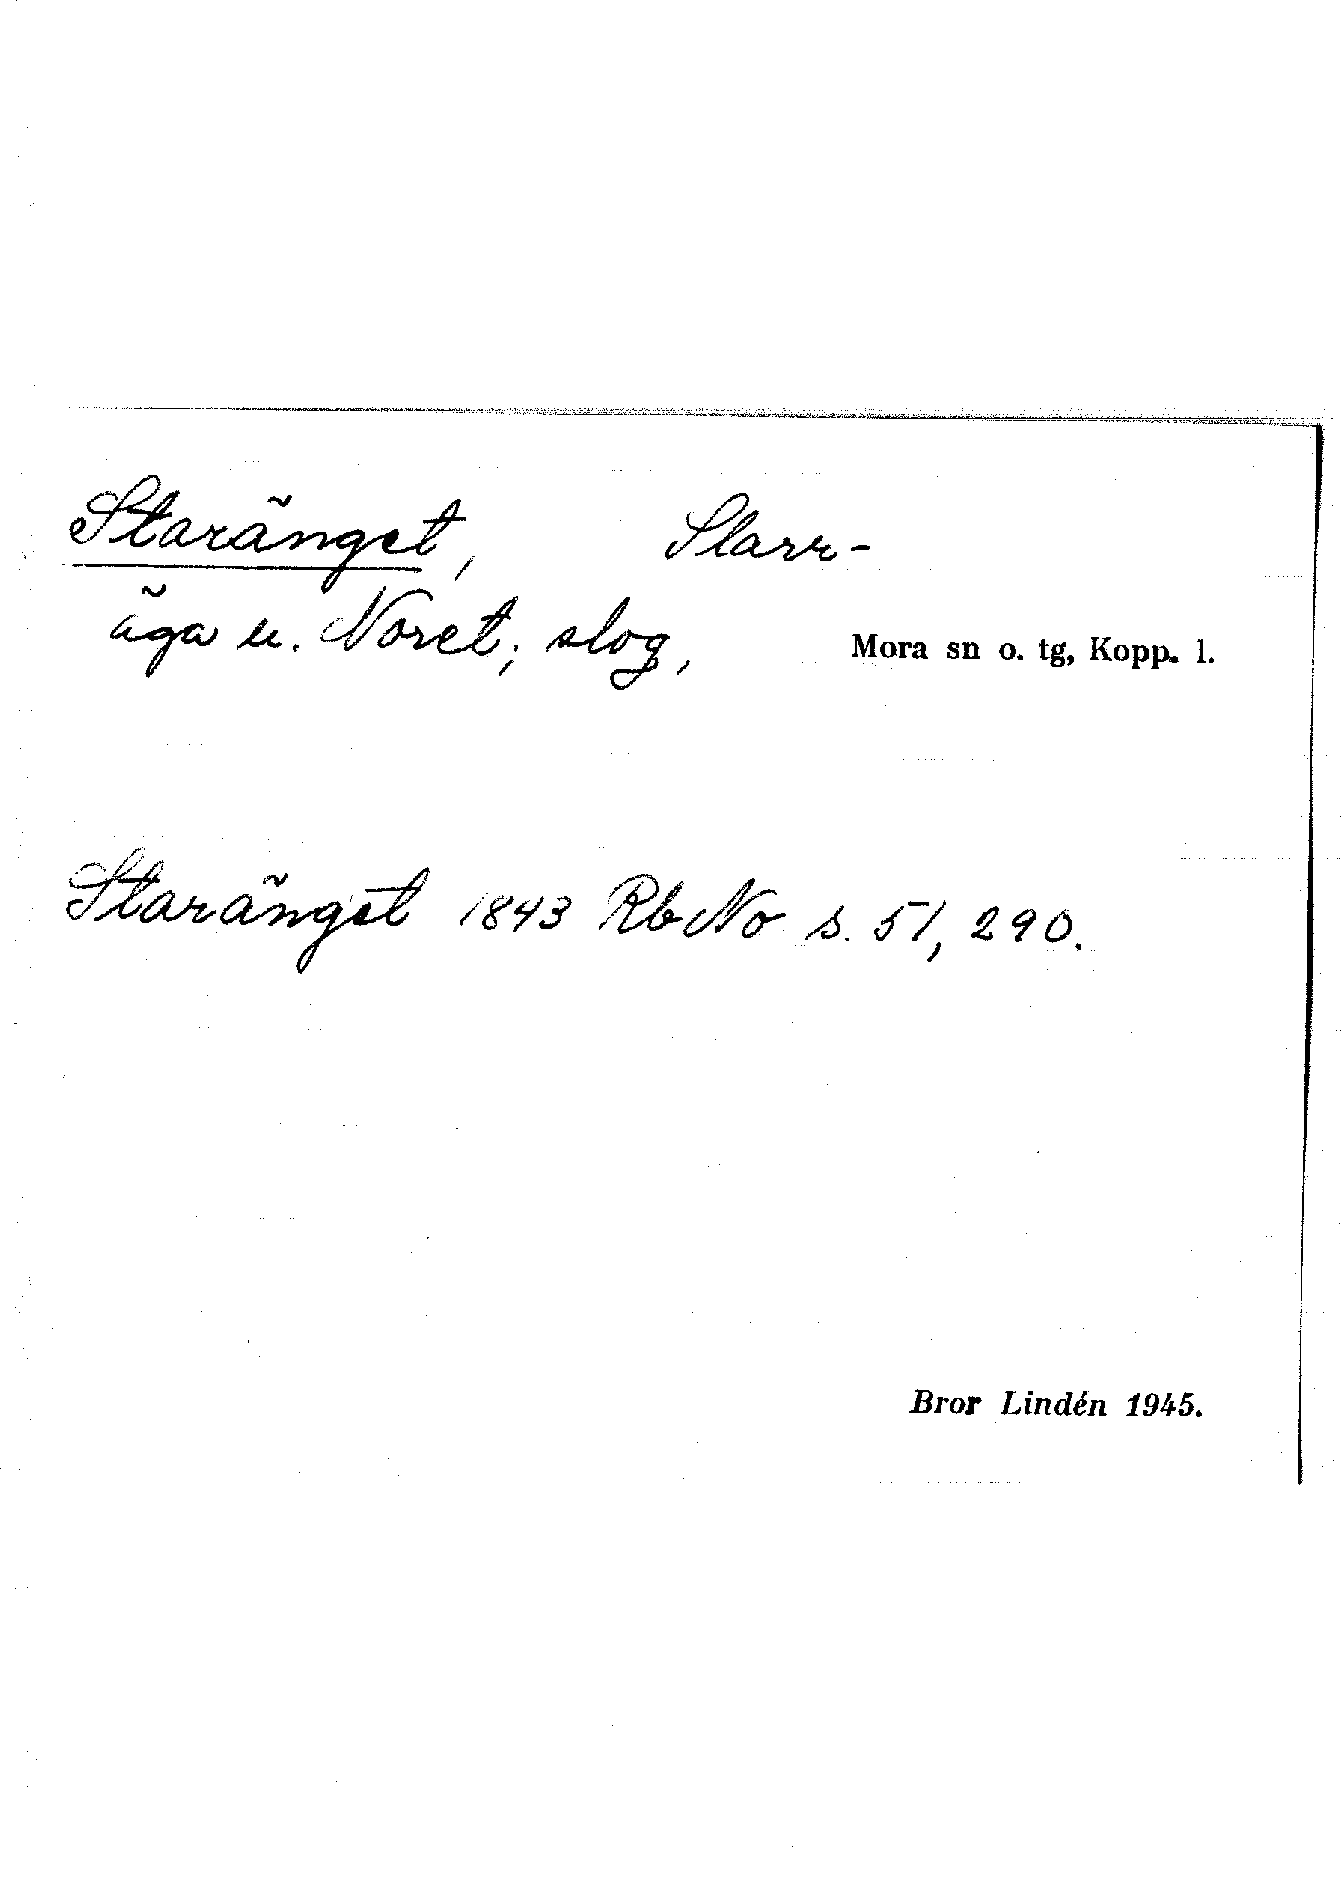 Staränget, Slarr-
äga u. Noret; slog, Mora sn o. tg, Kopp. l.
Staränget 1843 RbNo s. 51, 290.
Bror Lindén 1945.